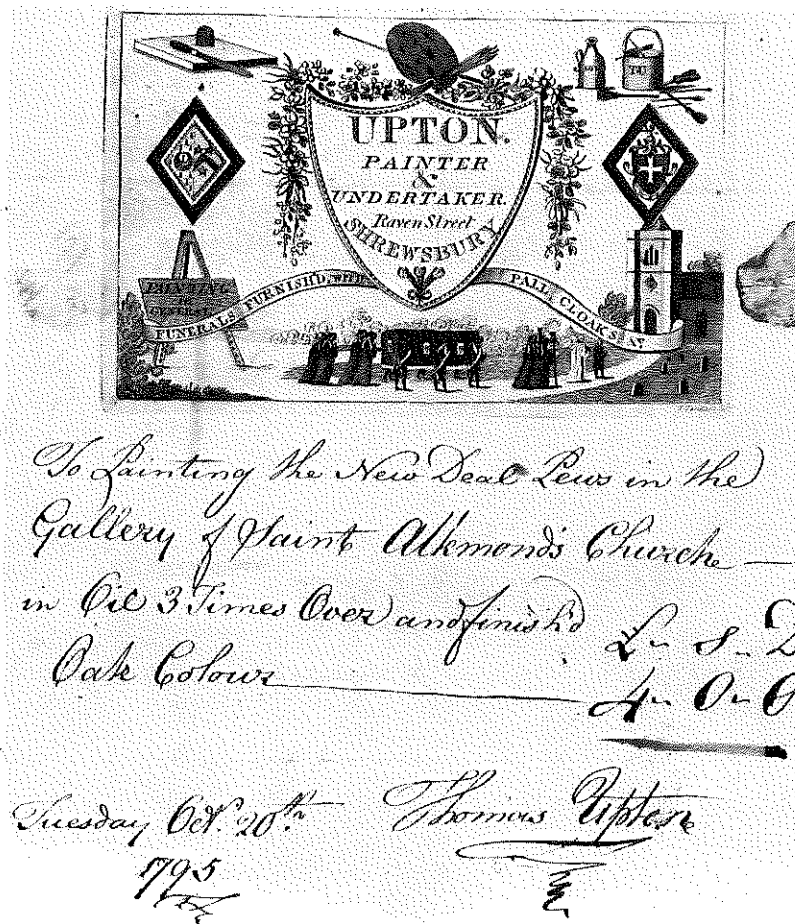 UPTON.
PAINTER
&
UNDERTAKER.
Raven Street
SHREWSBURY
PAINTING
IN
GENERAL
FUNERALS FURNISH'D, WITH PALL, CLOAKS, &c
To Painting the New Deal Pews in the
Gallery of Saint Alkmond's Church
in Oil 3 Times Over and finish'd
Oak Colour
L - S - D
4 - 0 - 0
Tuesday Oct. 20th
1795
Thomas Upton